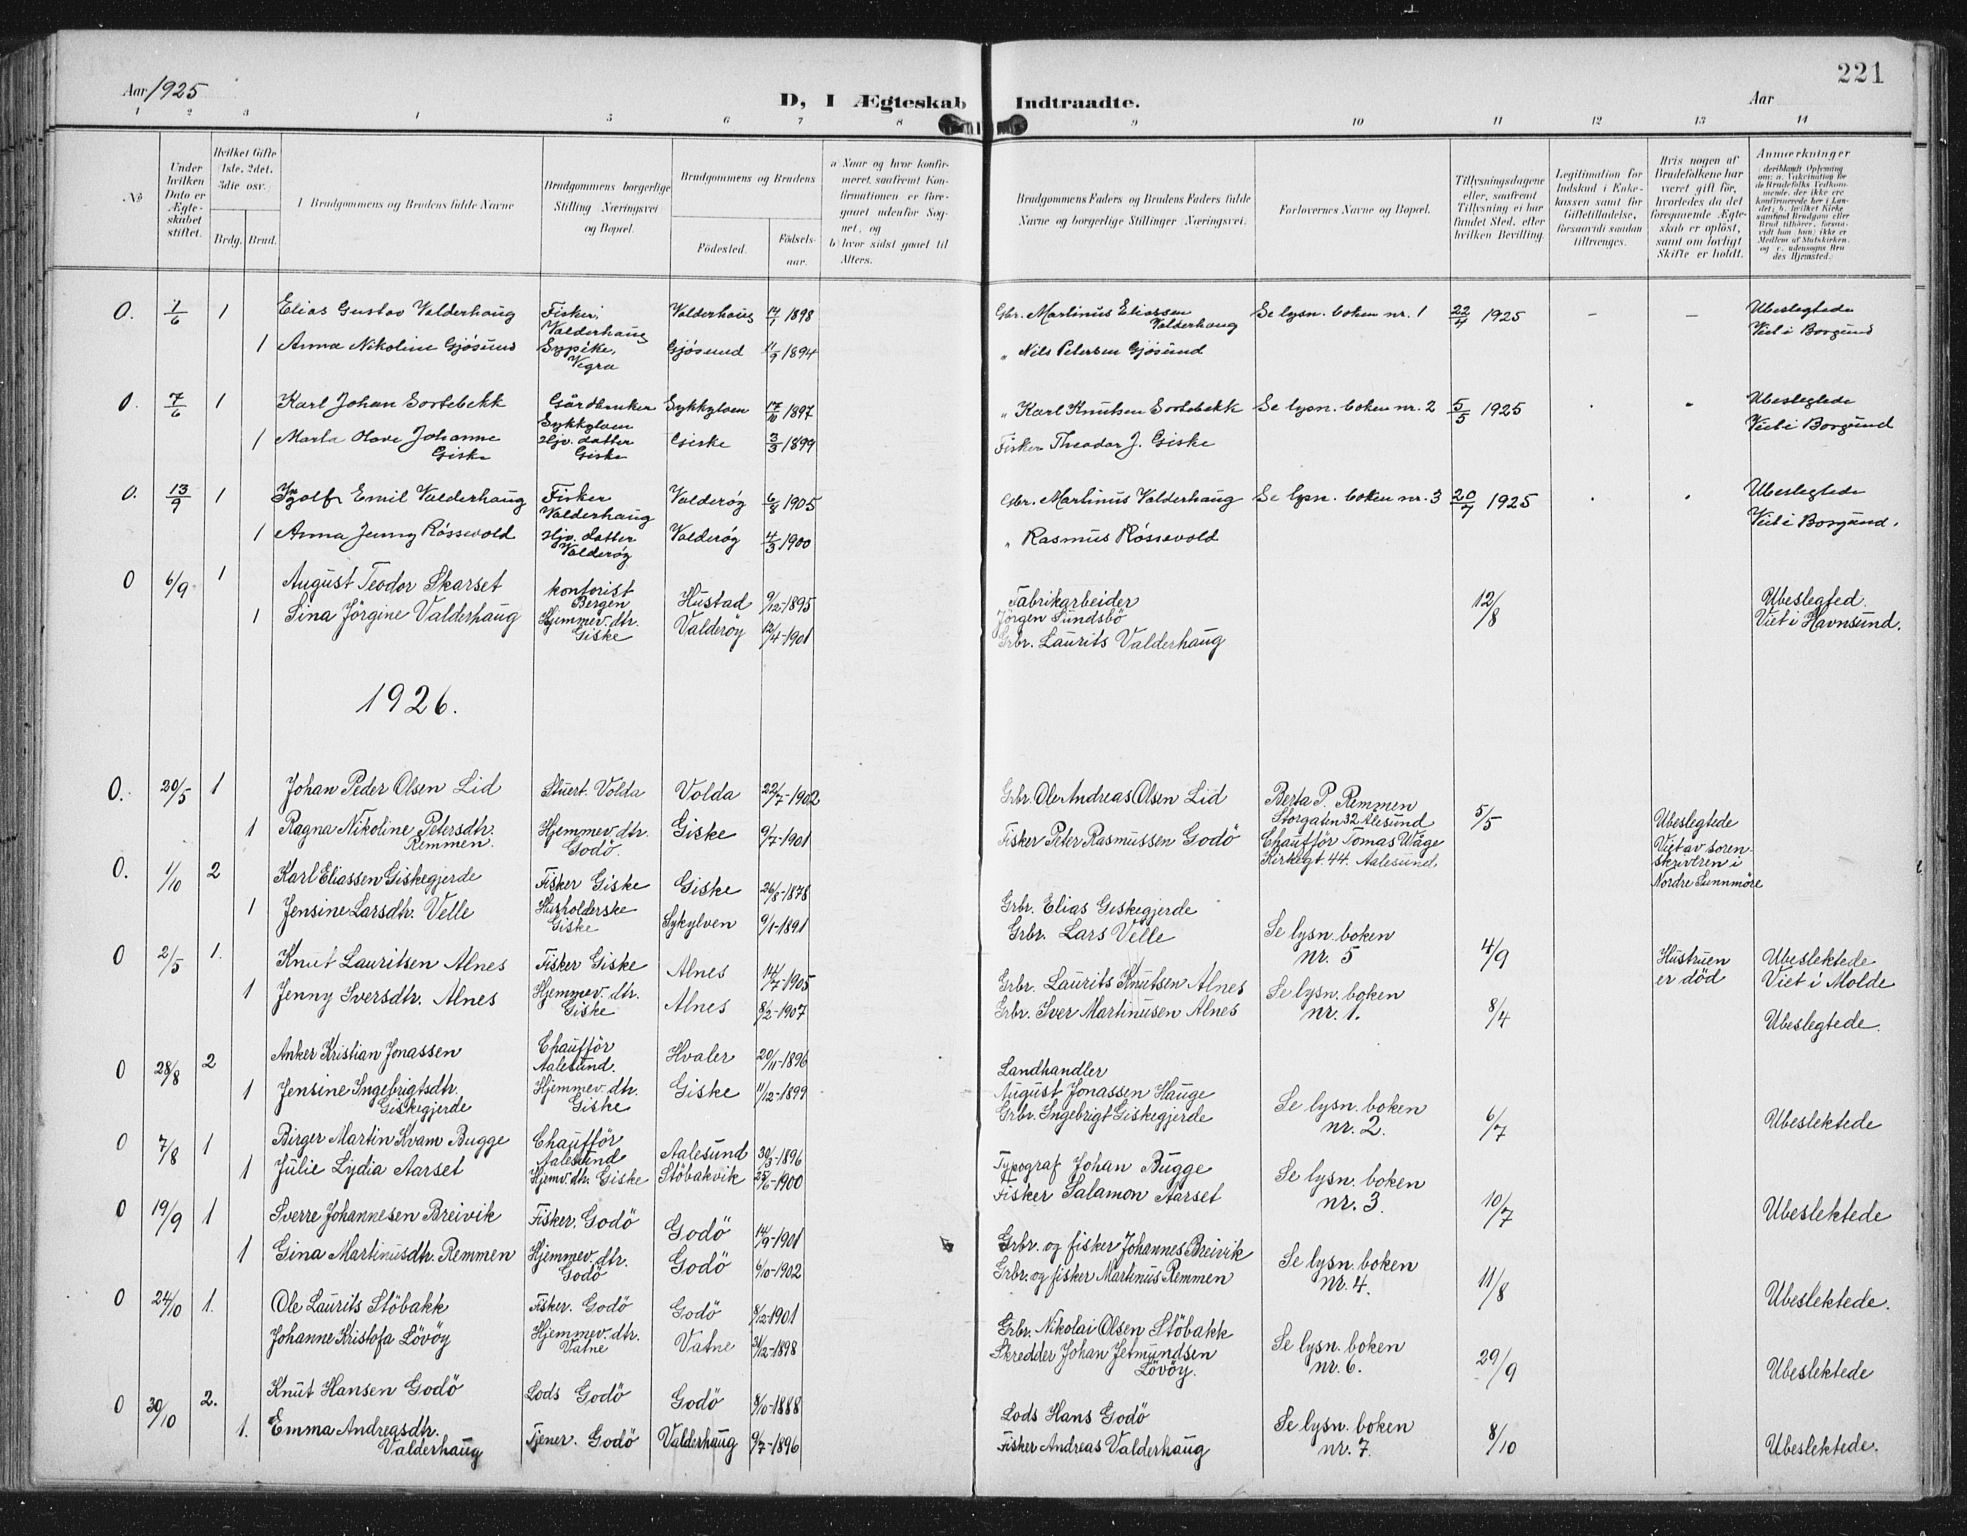 221
Aar 1925
D, I Ægteskab Indtraadte.
Aar
1 2 3 4 5 6 7 8 9 10 11 12 13 14
No
Under hvilken Dato er Ægteskabet stiftet.
Hvilket Gifte 1ste, 2det, 3die osv.
Brdg. Brud.
Brudgommens og Brudens fulde Navne
Brudgommens borgerlige Stilling Næringsvei og Bopæl.
Brudgommens og Brudens
Födested.
Födselsaar.
a Naar og hvor konfirmeret, saafremt Konfirmationen er foregaaet udenfor Sognet, og
b) hvor sidst gaaet til Alters.
Brudgommens Faders og Brudens Faders fulde Navne og borgerlige Stillinger Næringsvei.
Forlovernes Navne og Bopæl.
Tillysningsdagene eller, saafremt Tillysning ei har fundet Sted, efter hvilken Bevilling.
Legitimation for Indskud i Enkekassen samt for Giftetilladelse, forsaavidt saadan tiltrænges.
Hvis nogen af Brudefolkene har været gift før, hvorledes da det foregaaende Ægteskab er opløst, samt om lovligt Skifte er holdt.
Anmærkninger
O. 7/6 1 Elias Gustav Valderhaug Fisker, Valderhaug Valderhaug 17/1 1898 Gbr. Martinus Eliassen Valderhaug Se lysn. boken nr. 1 22/4 1925 – – Ubeslegtede
1 Anna Nikoline Gjøsund Sypike, Vigra Gjøsund 11/9 1894 " Nils Petersen Gjøsund Viet i Borgund
O. 7/6 1 Karl Johan Sortebekk Gårdbruker Sykkylven Sykkylven 17/10 1897 " Karl Knutsen Sortebekk Se lysn. boken nr. 2 5/5 1925 Ubeslegtede
1 Marta Olave Johanne Giske Hjv. datter Giske Giske 3/3 1899 Fisker Theodor J. Giske Viet i Borgund
O. 13/9 1 Ingolf Emil Valderhaug Fisker Valderhaug Valderøy 6/8 1905 Gbr. Martinus Valderhaug Se lysn. boken nr. 3 20/7 1925 Ubeslegtede
1 Anna Jenny Røssevold Hjv. datter Valderøy Valderøy 4/3 1900 " Rasmus Røssevold Viet i Borgund.
O 6/9 1 August Teodor Skarset kontorist Bergen Hustad 9/12-1895 Fabrikarbeider Jörgen Sundsbö 12/8 Ubeslegted.
1 Sina Jörgine Valderhaug Hjemmev. dtr. Giske Valderöy 12/4-1901 Grbr. Laurits Valderhaug Viet i Havnsund.
1926.
O. 20/5 1 Johan Peder Olsen Lid Stuert. Volda Volda 22/7-1902 Grbr. Ole Andreas Olsen Lid Berta P. Remmen Storgaten 32 Alesund 5/5
1 Ragna Nikoline Petersdtr. Remmen. Hjemmev. dtr. Godö. Giske 9/7-1901 Fisker Peter Rasmussen Godö Chaufför Tomas Wåge Kirkegt 44. Aalesund. Ubeslegtede Viet av sorenskriveren i Nordre Sunnmöre
O. 1/10 2 Karl Eliassen Giskegjerde Fisker Giske Giske 26/8-1878 Grbr. Elias Giskegjerde
1 Jensine Larsdtr. Velle Husholderske Giske Sykylven 9/1-1891 Grbr. Lars Velle Se lysn. boken nr. 5 4/9 Hustruen er död Ubeslektede Viet i Molde
O 2/5 1. Knut Lauritsen Alnes Fisker Giske Alnes 14/7-1905 Grbr. Laurits Knutsen Alnes Se lysn. boken
1 Jenny Iversdtr. Alnes Hjemmev. dtr. Giske Alnes 8/2-1907 Grbr. Iver Martinusen Alnes nr. 1. 8/4 Ubeslegtede.
O 28/8 2 Anker Kristian Jonassen Chaufför Aalesund. Hvaler 20/11-1896 Landhandler August Jonassen Hauge
1 Jensine Ingebrigtsdtr. Giskegjerde Hjemmev. dtr. Giske Giske 11/12-1899 Grbr. Ingebrigt Giskegjerde Se lysn. boken nr. 2. 6/7 Ubeslektede
O 7/8 1 Birger Martin Kvam Bugge Chaufför Aalesund Aalesund 30/3-1896 Typograf Johan Bugge Se lysn. boken
1 Julie Lydia Aarset Hjemv. dtr. Giske Stöbakvik 25/6-1900 Fisker Salamon Aarset nr. 3. 10/7 Ubeslektede
O 19/9 1 Sverre Johannesen Breivik Fisker. Godö Godö 14/9-1901 Grbr. og fisker Johannes Breivik Se lysn. boken
1 Gina Martinusdtr. Remmen Hjemmev. dtr. Godö Godö 6/10-1902 Grbr. og fisker Martinus Remmen nr. 4. 11/8 Ubeslektede.
O 24/10 1. Ole Laurits Stöbakk Fisker. Godö Godö 8/2-1901 Grbr. Nikolai Olsen Stöbakk Se lysn. boken
Johanne Kristofa Lövöy Hjemmev. dtr. Vatne Vatne /12-1898 Skredder Johan Jetmundsen Lövöy. nr. 6. 29/9 Ubeslektede
O 30/10 2. Knut Hansen Godö Lods Godö Godö 8/10-1888 Lods Hans Godö Se lysn. boken
1. Emma Andreasdtr. Valderhaug Tjener. Godö Valderhaug 9/7-1896 Fisker Andreas Valderhaug nr. 7. 8/10 Ubeslektede.